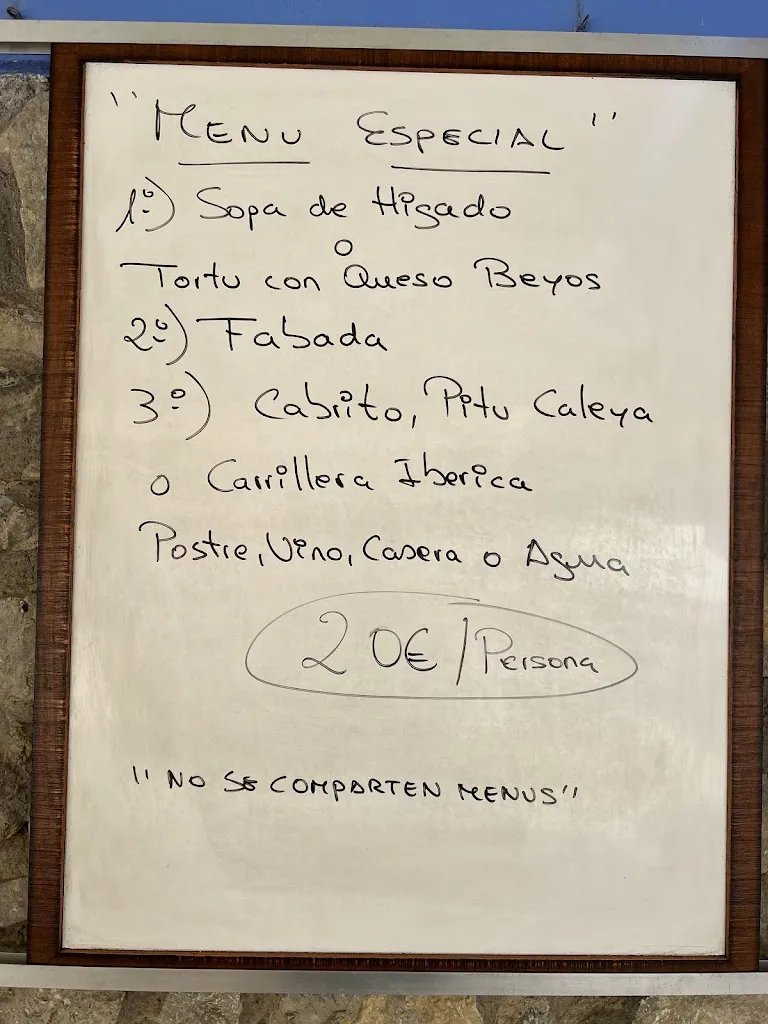 "MENU ESPECIAL"
1º) Sopa de Higado
o
Tortu con Queso Beyos
2º) Fabada
3º) Cabrito, Pitu Caleya
o Carrillera Iberica
Postre, Vino, Casera o Agua
20€/Persona
"NO SE COMPARTEN MENUS"